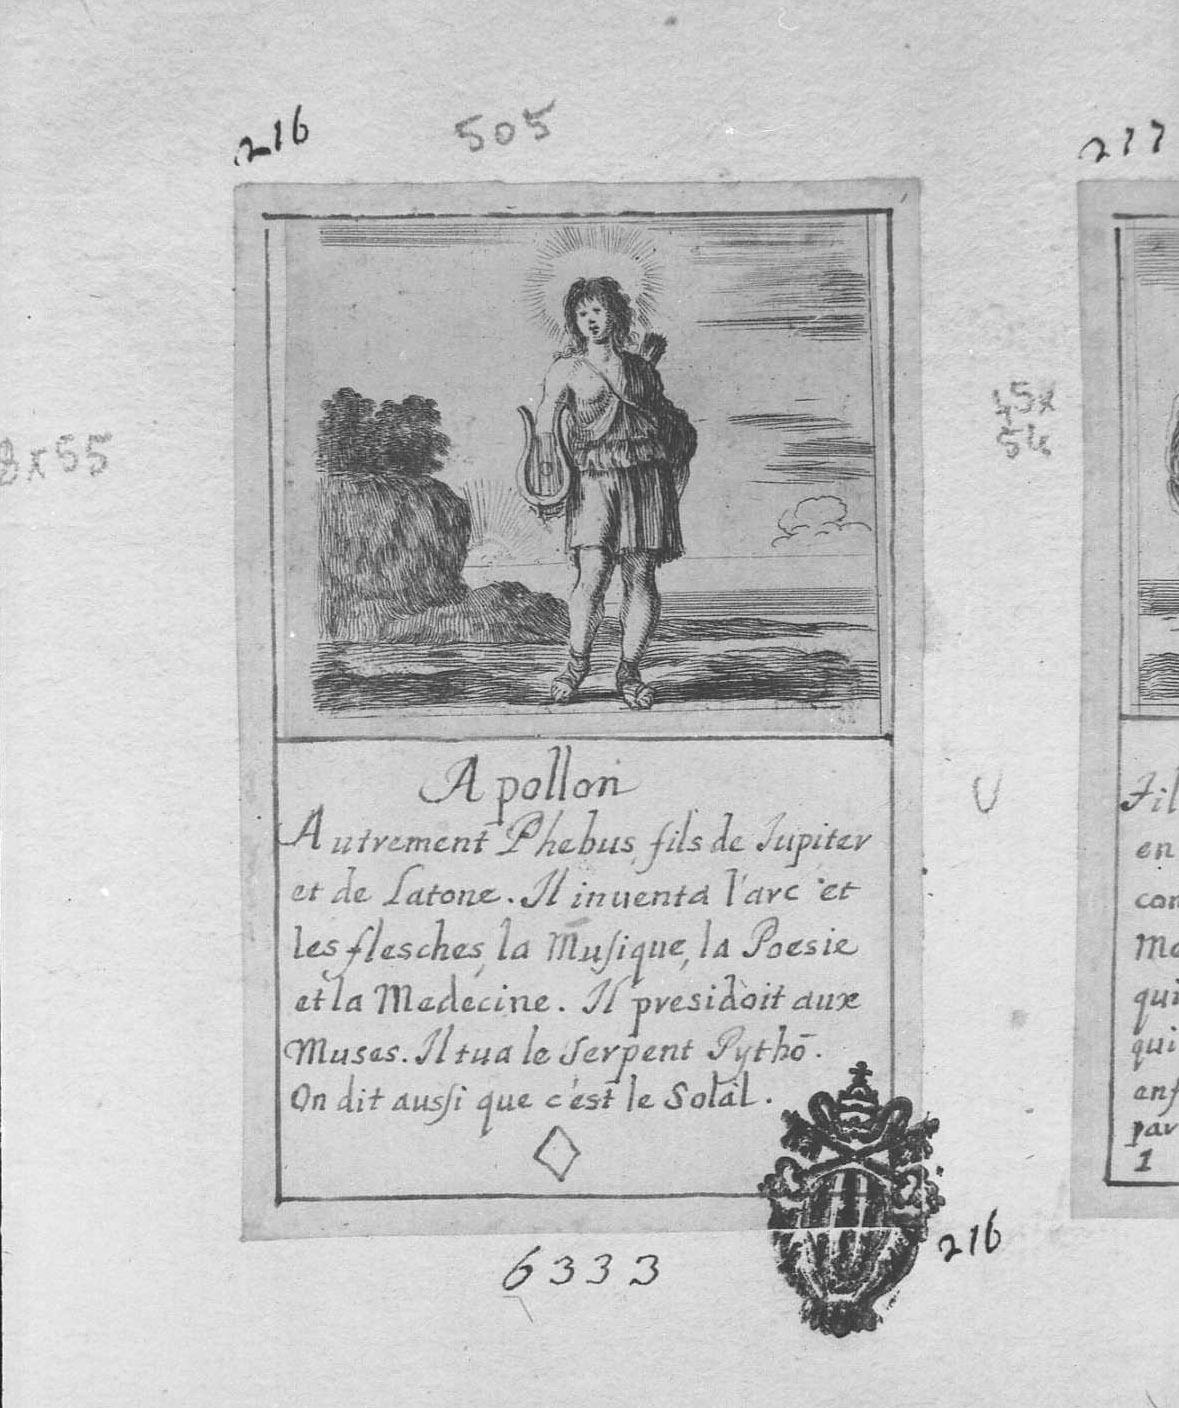 216
505
217
8x55
45x
54
Apollon
Autrement Phebus, fils de Iupiter
et de Latone. Il inuenta l'arc et
les flesches, la Muſique, la Poesie
et la Medecine. Il presidoit aux
Muses. Il tua le Serpent Pythō.
On dit auſsi que c'est le Solail.
6333
216
U
Fil
en
con
qui
qui
enf
par
1